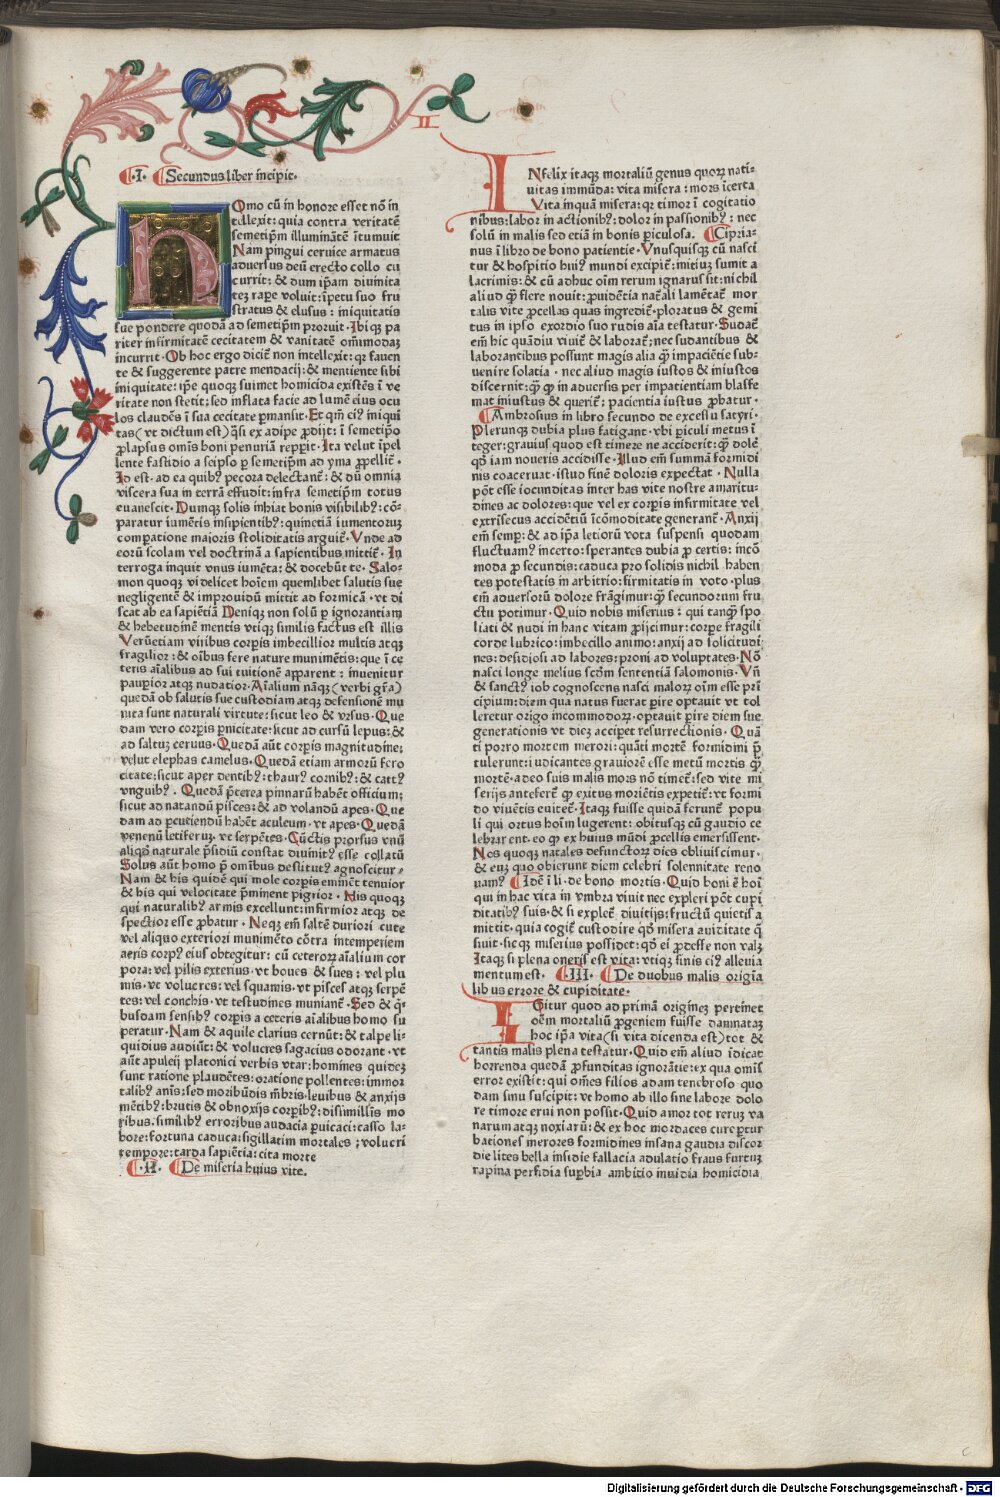 II
·I· Secundus liber incipit·
Homo cū in honore esset nō in
tellexit: quia contra veritatē
semetip̄m illuminātē ītumuit
Nam pingui ceruice armatus
aduersus deū erecto collo cu
currit: & dum ip̄am diuinita
teꝫ rape voluit: īpetu suo fru
stratus & elusus : iniquitatis
sue pondere quodā ad semetip̄m proruit· Ibiqꝫ pa
riter infirmitatē cecitatem & vanitatē om̄imodaꝫ
incurrit· Ob hoc ergo dicit̄ non intellexit: qꝛ fauen
te & suggerente patre mendacij: & mentiente sibi
iniquitate: ip̄e quoqꝫ suimet homicida existēs ī ve
ritate non stetit: sed inflata facie ad lumē eius ocu
los claudēs ī sua cecitate ꝑmansit· Et qm̄ ei⁹ iniqui
tas (vt dictum est) q̄si ex adipe ꝓdijt: ī semetip̄o
ꝓlapsus om̄is boni penuriā repꝑit· Ita velut īpel
lente fastidio a seipso ꝑ semetip̄m ad yma ꝓpellit̄·
Id est· ad ea quib⁹ pecora delectant̄: & dū omnia
viscera sua in terrā effudit: infra semetip̄m totus
euanescit· Dumqꝫ solis inhiat bonis visibilib⁹: cō-
paratur iumētis insipientib⁹: quinetiā iumentoꝝ
comꝑatione maioris stoliditatis arguit̄· Vnde ad
eorū scolam vel doctrinā a sapientibus mittit̄· In
terroga inquit vnus iumēta: & docebūt te· Salo-
mon quoqꝫ videlicet hoīem quemlibet salutis sue
negligentē & improuidū mittit ad formicā · vt di
scat ab ea sapiētiā Deniqꝫ non solū ꝑ ignorantiam
& hebetudinē mentis vtiqꝫ similis factus est illis
Verūetiam viribus corpis imbecillior multis atqꝫ
fragilior: & oībus fere nature munimētis: que ī ce
teris aīalibus ad sui tuitionē apparent : inuenitur
pauꝑior atqꝫ nudatior· Aīalium nāqꝫ (verbi gr̄a)
quedā ob salutis sue custodiam atqꝫ defensionē mu
nita sunt naturali virtute: sicut leo & vrsus· Que
dam vero corpis ꝑnicitate: sicut ad cursū lepus: &
ad saltuꝫ ceruus· Quedā aūt corpis magnitudine:
velut elephas camelus· Quedā etiam armorū fero
citate: sicut aper dentib⁹: thaur⁹ cornib⁹: & catt⁹
vnguib⁹· Quedā p̄terea pinnarū habēt officium:
sicut ad natandū pisces: & ad volandū apes· Que
dam ad ꝑcutiendū habēt aculeum· vt apes· Quedā
venenū letiferuꝫ· vt serpētes· Cūctis prorsus vnū
aliqd̄ naturale p̄sidiū constat diuinit⁹ esse collatū
Solus aūt homo p̄ om̄ibus destitut⁹ agnoscitur·
Nam & his quidē qui mole corpis eminēt tenuior
& his qui velocitate p̄minent pigrior · His quoqꝫ
qui naturalib⁹ armis excellunt: infirmior atqꝫ de
spectior esse ꝓbatur · Neqꝫ em̄ saltē duriori cute
vel aliquo exteriori munimēto cōtra intemperiem
aeris corp⁹ eius obtegitur: cū ceteroꝝ aīalium cor
pora: vel pilis exterius· vt boues & sues: vel plu
mis· vt volucres: vel squamis· vt pisces atqꝫ serpē
tes: vel conchis· vt testudines muniant̄· Sed & q̄-
busdam sensib⁹ corpis a ceteris aīalibus homo su
peratur· Nam & aquile clarius cernūt: & talpe li-
quidius audiūt: & volucres sagacius odorant· vt
aūt apuleij platonici verbis vtar: homines quideꝫ
sunt ratione plaudētes: oratione pollentes: immor
talib⁹ anīs: sed moribūdis m̄bris· leuibus & anxijs
mētib⁹: brutis & obnoxijs corpib⁹: disimillis mo
ribus· similib⁹ erroribus audacia ꝑuicaci: casso la-
bore: fortuna caduca: sigillatim mortales ; volucri
tempore: tarda sapiētia: cita morte
·II· De miseria huius vite.
INfelix itaqꝫ mortaliū genus quoꝝ nati-
uitas immūda: vita misera: mors īcerta
Vita inquā misera: qꝛ timor ī cogitatio
nibus: labor in actionib⁹: dolor in passionib⁹: nec
solū in malis sed etiā in bonis ꝑiculosa. Cipria-
nus ī libro de bono patientie · Vnusquisqꝫ cū nasci
tur & hospitio hui⁹ mundi excipit̄: initiuꝫ sumit a
lacrimis: & cū adhuc oīm rerum ignarus sit: nichil
aliud qͫ flere nouit: ꝓuidētia nat̄ali lamētat̄ mor
talis vite ꝓcellas quas ingredit̄· ploratus & gemi
tus in ipso exordio suo rudis aīa testatur· Sudat̄
em̄ hic quādiu viuit̄ & laborat̄: nec sudantibus &
laborantibus possunt magis alia qͫ impaciētie sub-
uenire solatia · nec aliud magis iustos & iniustos
discernit: qͫ ꝙ in aduersis per impatientiam blasfe
mat iniustus & querit̄: pacientia iustus ꝓbatur·
Ambrosius in libro secundo de excessu satyri·
Plerunqꝫ dubia plus fatigant· vbi ꝑiculi metus ī
teger: grauius quod est timere ne acciderit: qͫ dolē
qd̄ iam noueris accidisse· Illud em̄ summā formidi
nis coaceruat· istud finē doloris expectat · Nulla
pōt esse iocunditas inter has vite nostre amaritu-
dines ac dolores: que vel ex corpis infirmitate vel
extrisecus accidētiū īcōmoditate generant̄· Anxij
em̄ semꝑ: & ad ip̄a letiorū vota suspensi quodam
fluctuam⁹ incerto: sperantes dubia ꝓ certis: incō
moda ꝓ secundis: caduca pro solidis nichil haben
tes potestatis in arbitrio: firmitatis in voto· plus
em̄ aduersorū dolore frāgimur: qͫ secundorum fru
ctu potimur· Quid nobis miserius : qui tanqͫ spo
liati & nudi in hanc vitam ꝓijcimur: corpe fragili
corde lubrico: imbecillo animo: anxij ad solicitudi
nes: desidiosi ad labores: proni ad voluptates· Nō
nasci longe melius scd̄m sentētiā salomonis· Vn̄
& sanct⁹ iob cognoscens nasci maloꝝ oīm esse pri
cipium: diem qua natus fuerat ꝑire optauit vt tol
leretur origo incommodoꝝ· optauit ꝑire diem sue
generationis vt dieꝫ acciꝑet resurrectionis· Quā
ti porro mortem merori: quāti mortē formidini p̄
tulerunt: iudicantes grauiorē esse metū mortis qͫ
mortē· adeo suis malis mors nō timet̄: sed vite mi
serijs antefert̄ ꝙ exitus moriētis expetit̄: vt formi
do viuētis euitet̄· Itaqꝫ fuisse quidā ferunt̄ popu
li qui ortus hoīm lugerent: obitusqꝫ cū gaudio ce
lebrarent· eo ꝙ ex huius mūdi ꝓcellis emersissent·
Nos quoqꝫ natales defunctoꝝ dies obliuiscimur·
& euꝫ quo obierunt diem celebri solennitate reno
uam⁹ Idē ī li· de bono mortis· Quid boni ē hoī
qui in hac vita in vmbra viuit nec expleri pōt cupi
ditatib⁹ suis· & si explet̄ diuitijs: fructū quietis a
mittit· quia cogit̄ custodire qd̄ misera auiditate q̄
siuit· sicqꝫ miserius possidet: qd̄ ei ꝓdesse non valꝫ
Itaqꝫ si plena oneris est vita: vtiqꝫ finis ei⁹ alleuia
mentum est· ·III· De duobus malis origīa
libus errore & cupiditate·
IGitur quod ad primā origineꝫ pertinet
oēm mortaliū ꝓgeniem fuisse damnataꝫ
hoc ip̄a vita (si vita dicenda est) tot &
tantis malis plena testatur· Quid em̄ aliud īdicat
horrenda quedā ꝓfunditas ignorātie: ex qua omīs
error existit: qui om̄es filios adam tenebroso quo
dam sinu suscipit: vt homo ab illo sine labore dolo
re timore erui non possit· Quid amor tot reruꝫ va
narum atqꝫ noxiarū: & ex hoc mordaces cure ꝑtur
bationes merores formidines insana gaudia discor
die lites bella insidie fallacia adulatio fraus furtuꝫ
rapina perfidia suꝑbia ambitio inuidia homicidia
c
Digitalisierung gefördert durch die Deutsche Forschungsgemeinschaft - DFG